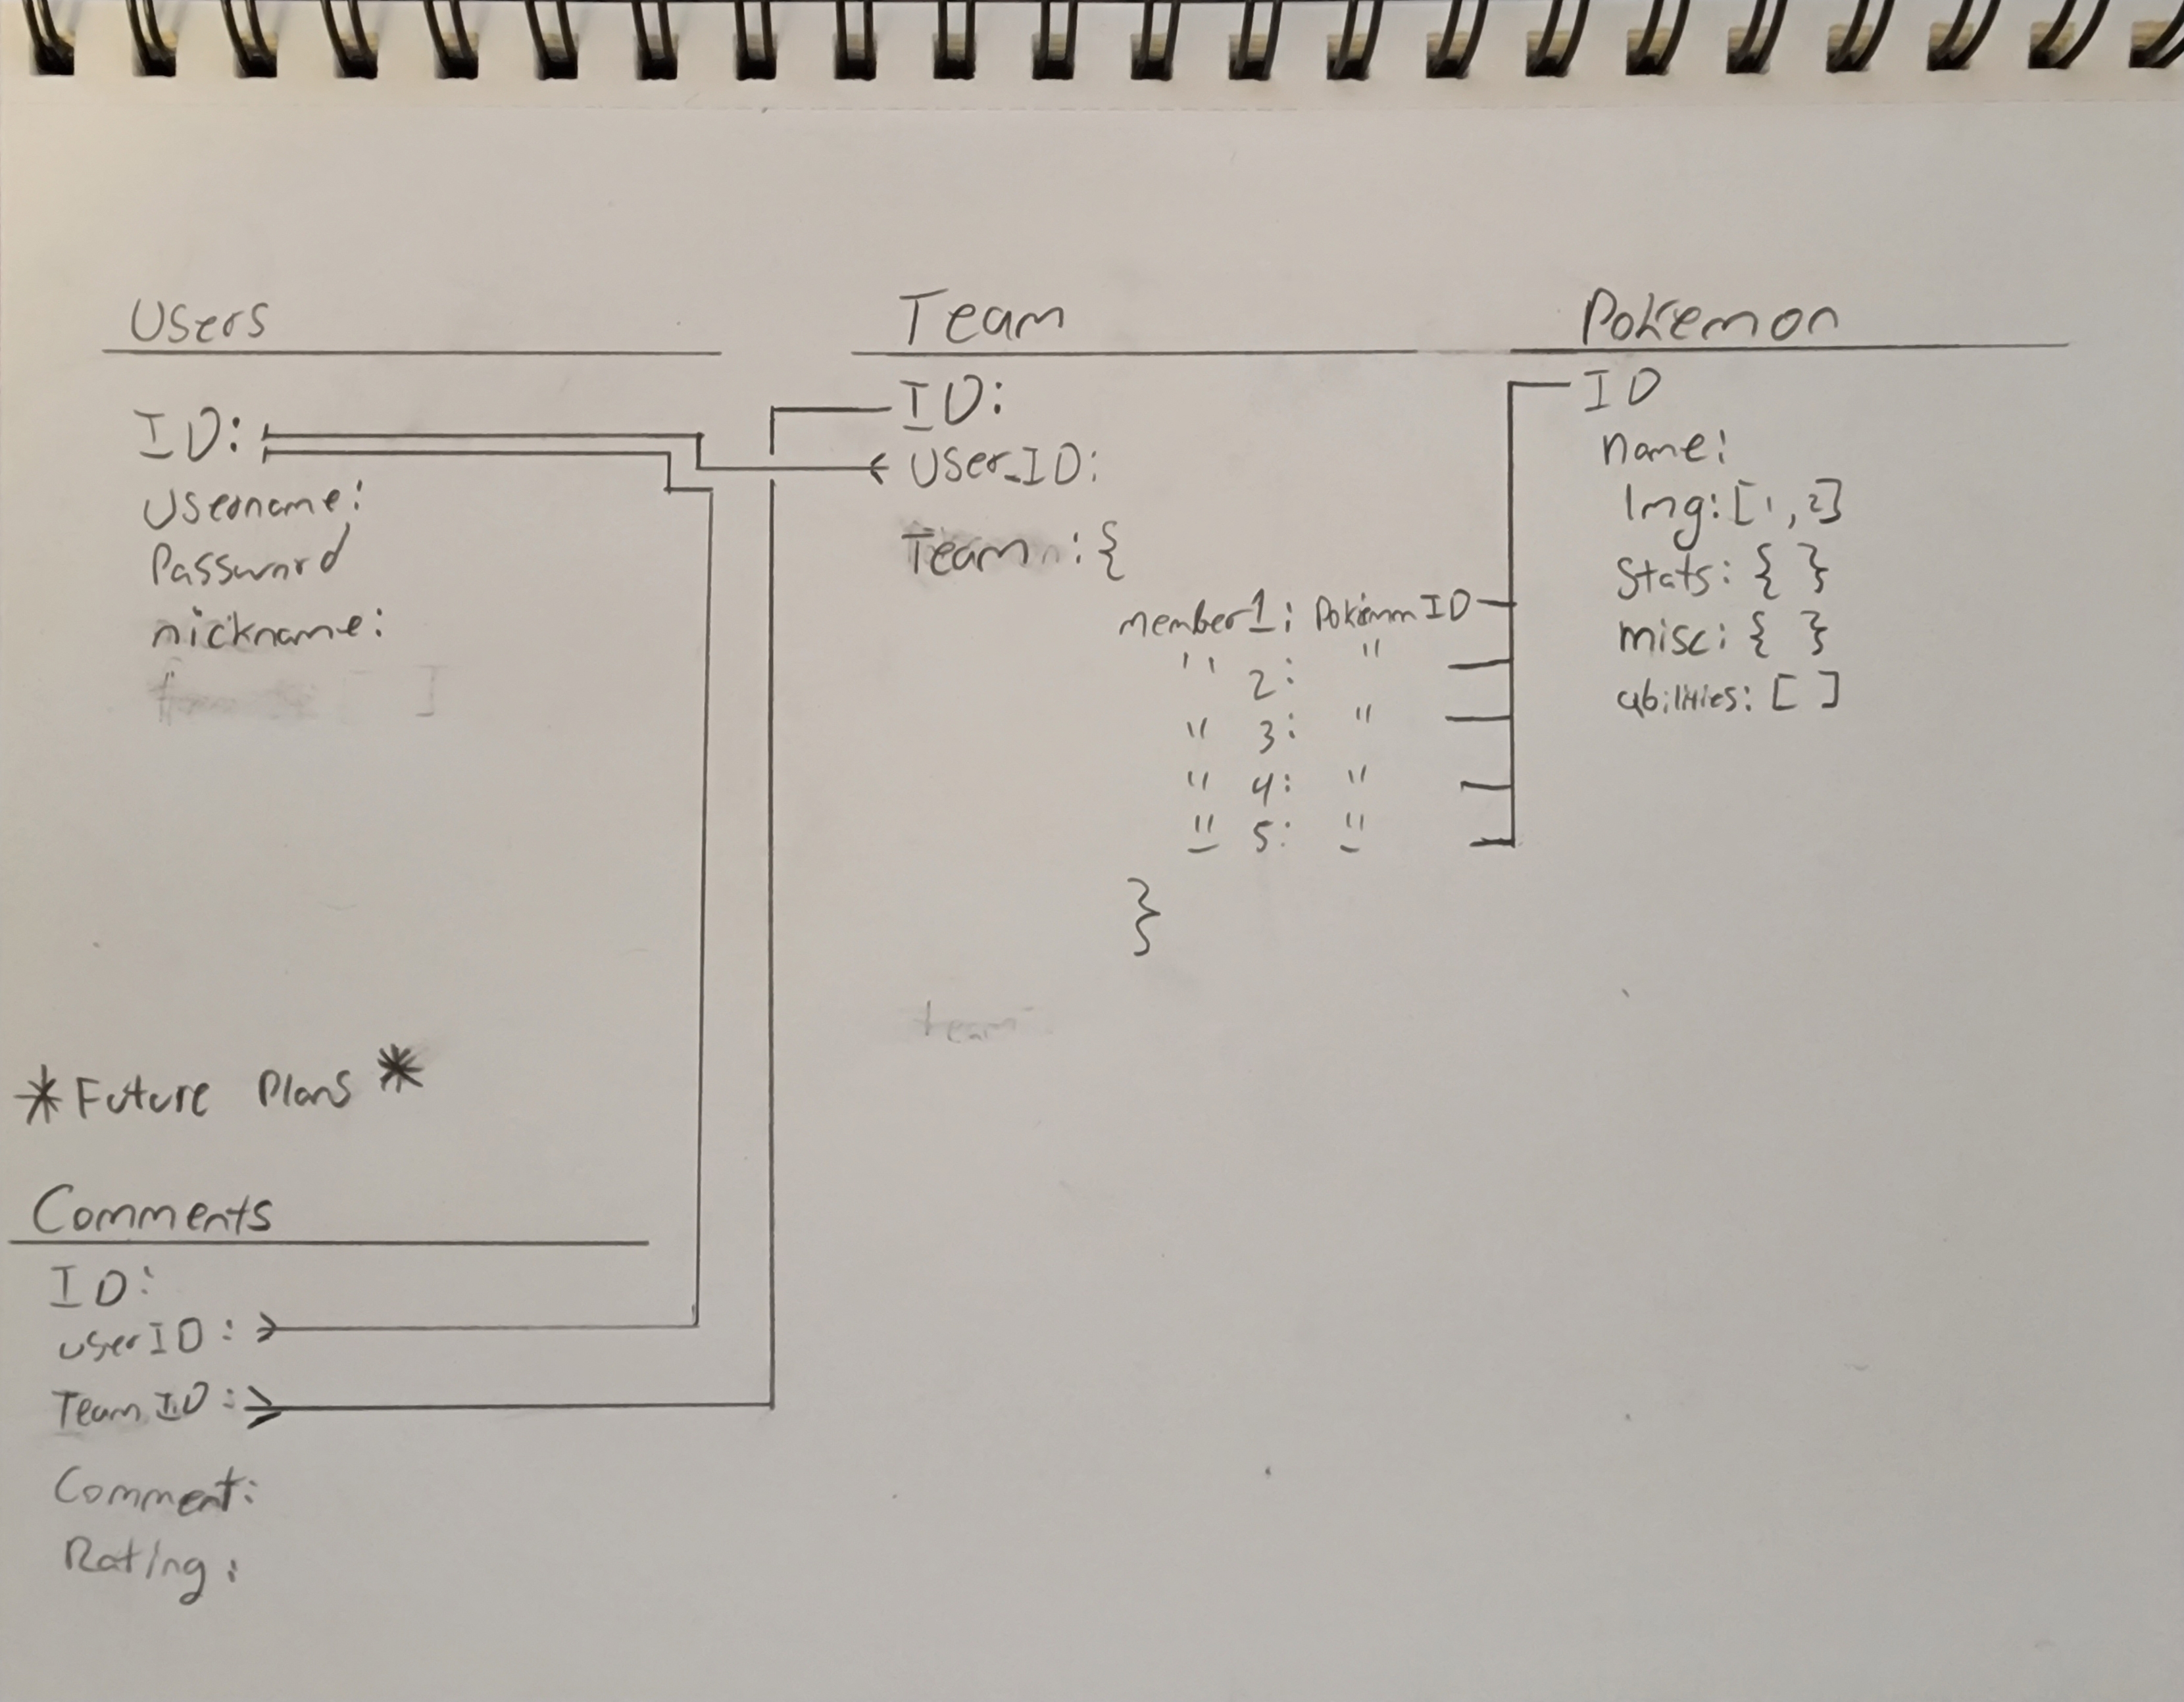 Users
ID:
Username:
Password
nickname:
Team
ID:
User_ID:
Team : {
member1: Pokemon ID
" 2: "
" 3: "
" 4: "
" 5: "
}
team
Pokemon
ID
name:
Img: [1, 2]
Stats: { }
misc: { }
abilities: [ ]
*Future Plans*
Comments
ID:
userID:
Team ID:
Comment:
Rating: